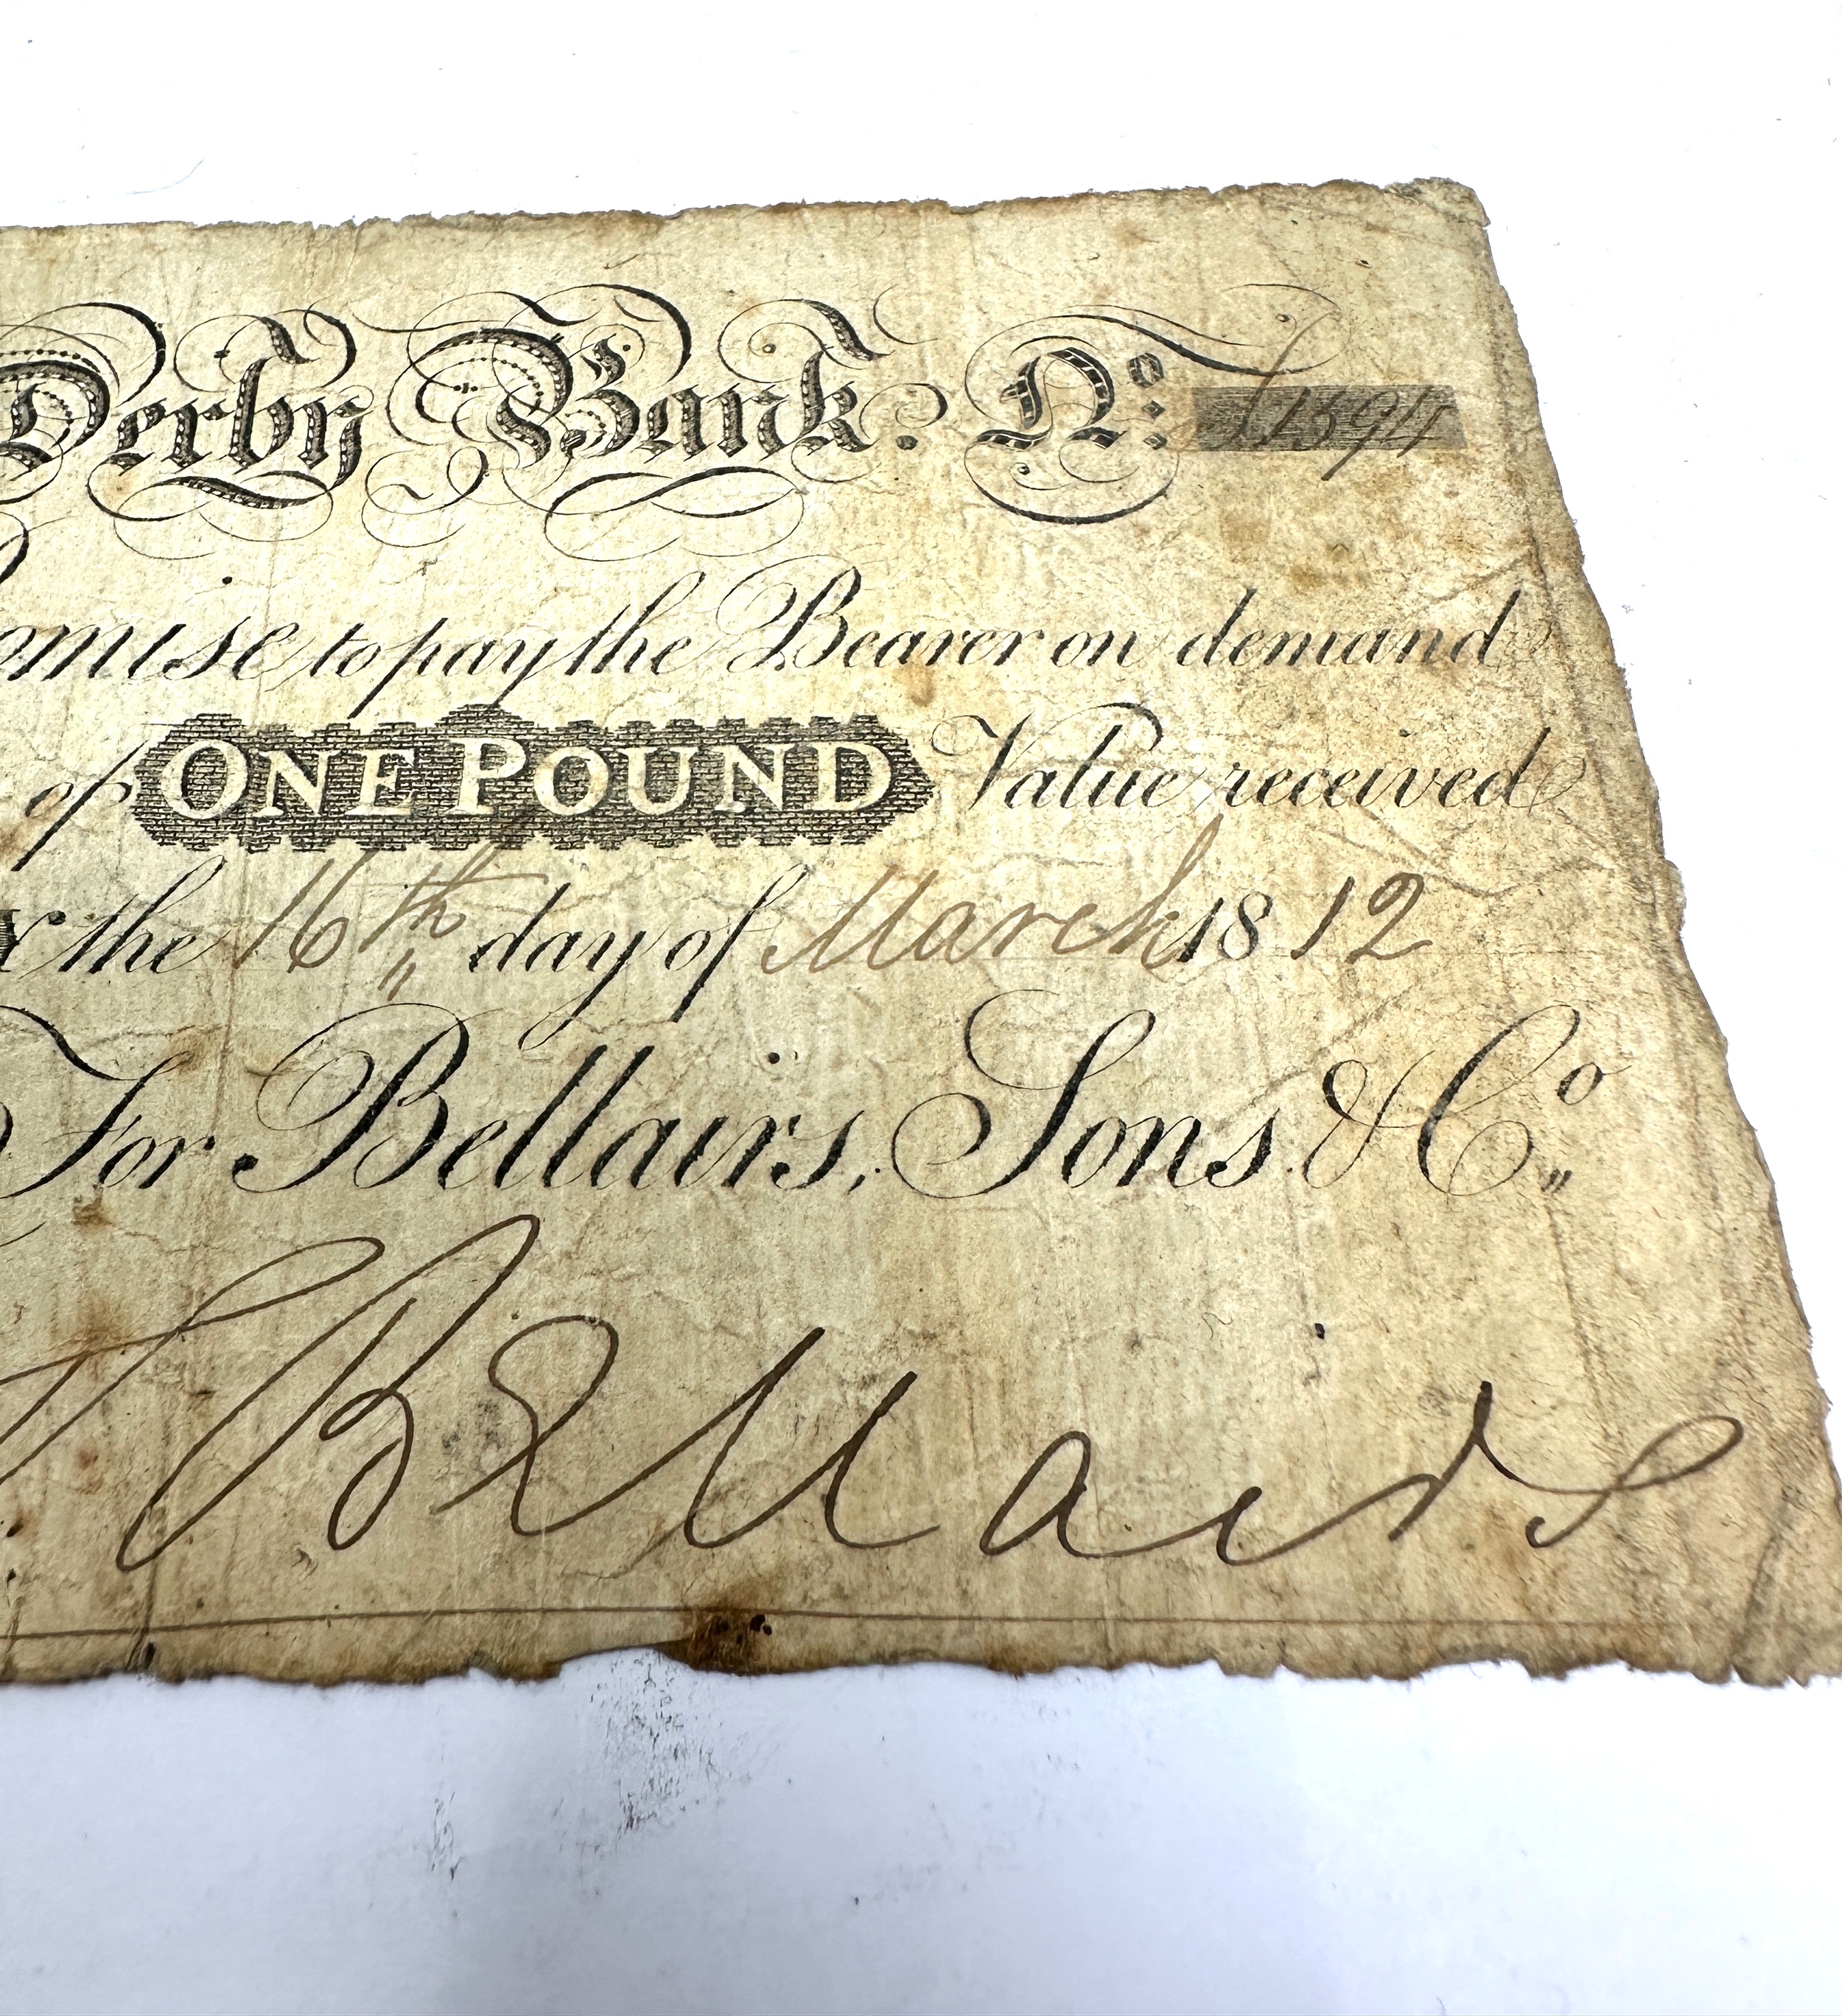 Derby Bank. No. 1394
omise to pay the Bearer on demand
of ONE POUND Value received
the 16th day of March 1812
For Bellairs, Sons & Co.
Bellairs